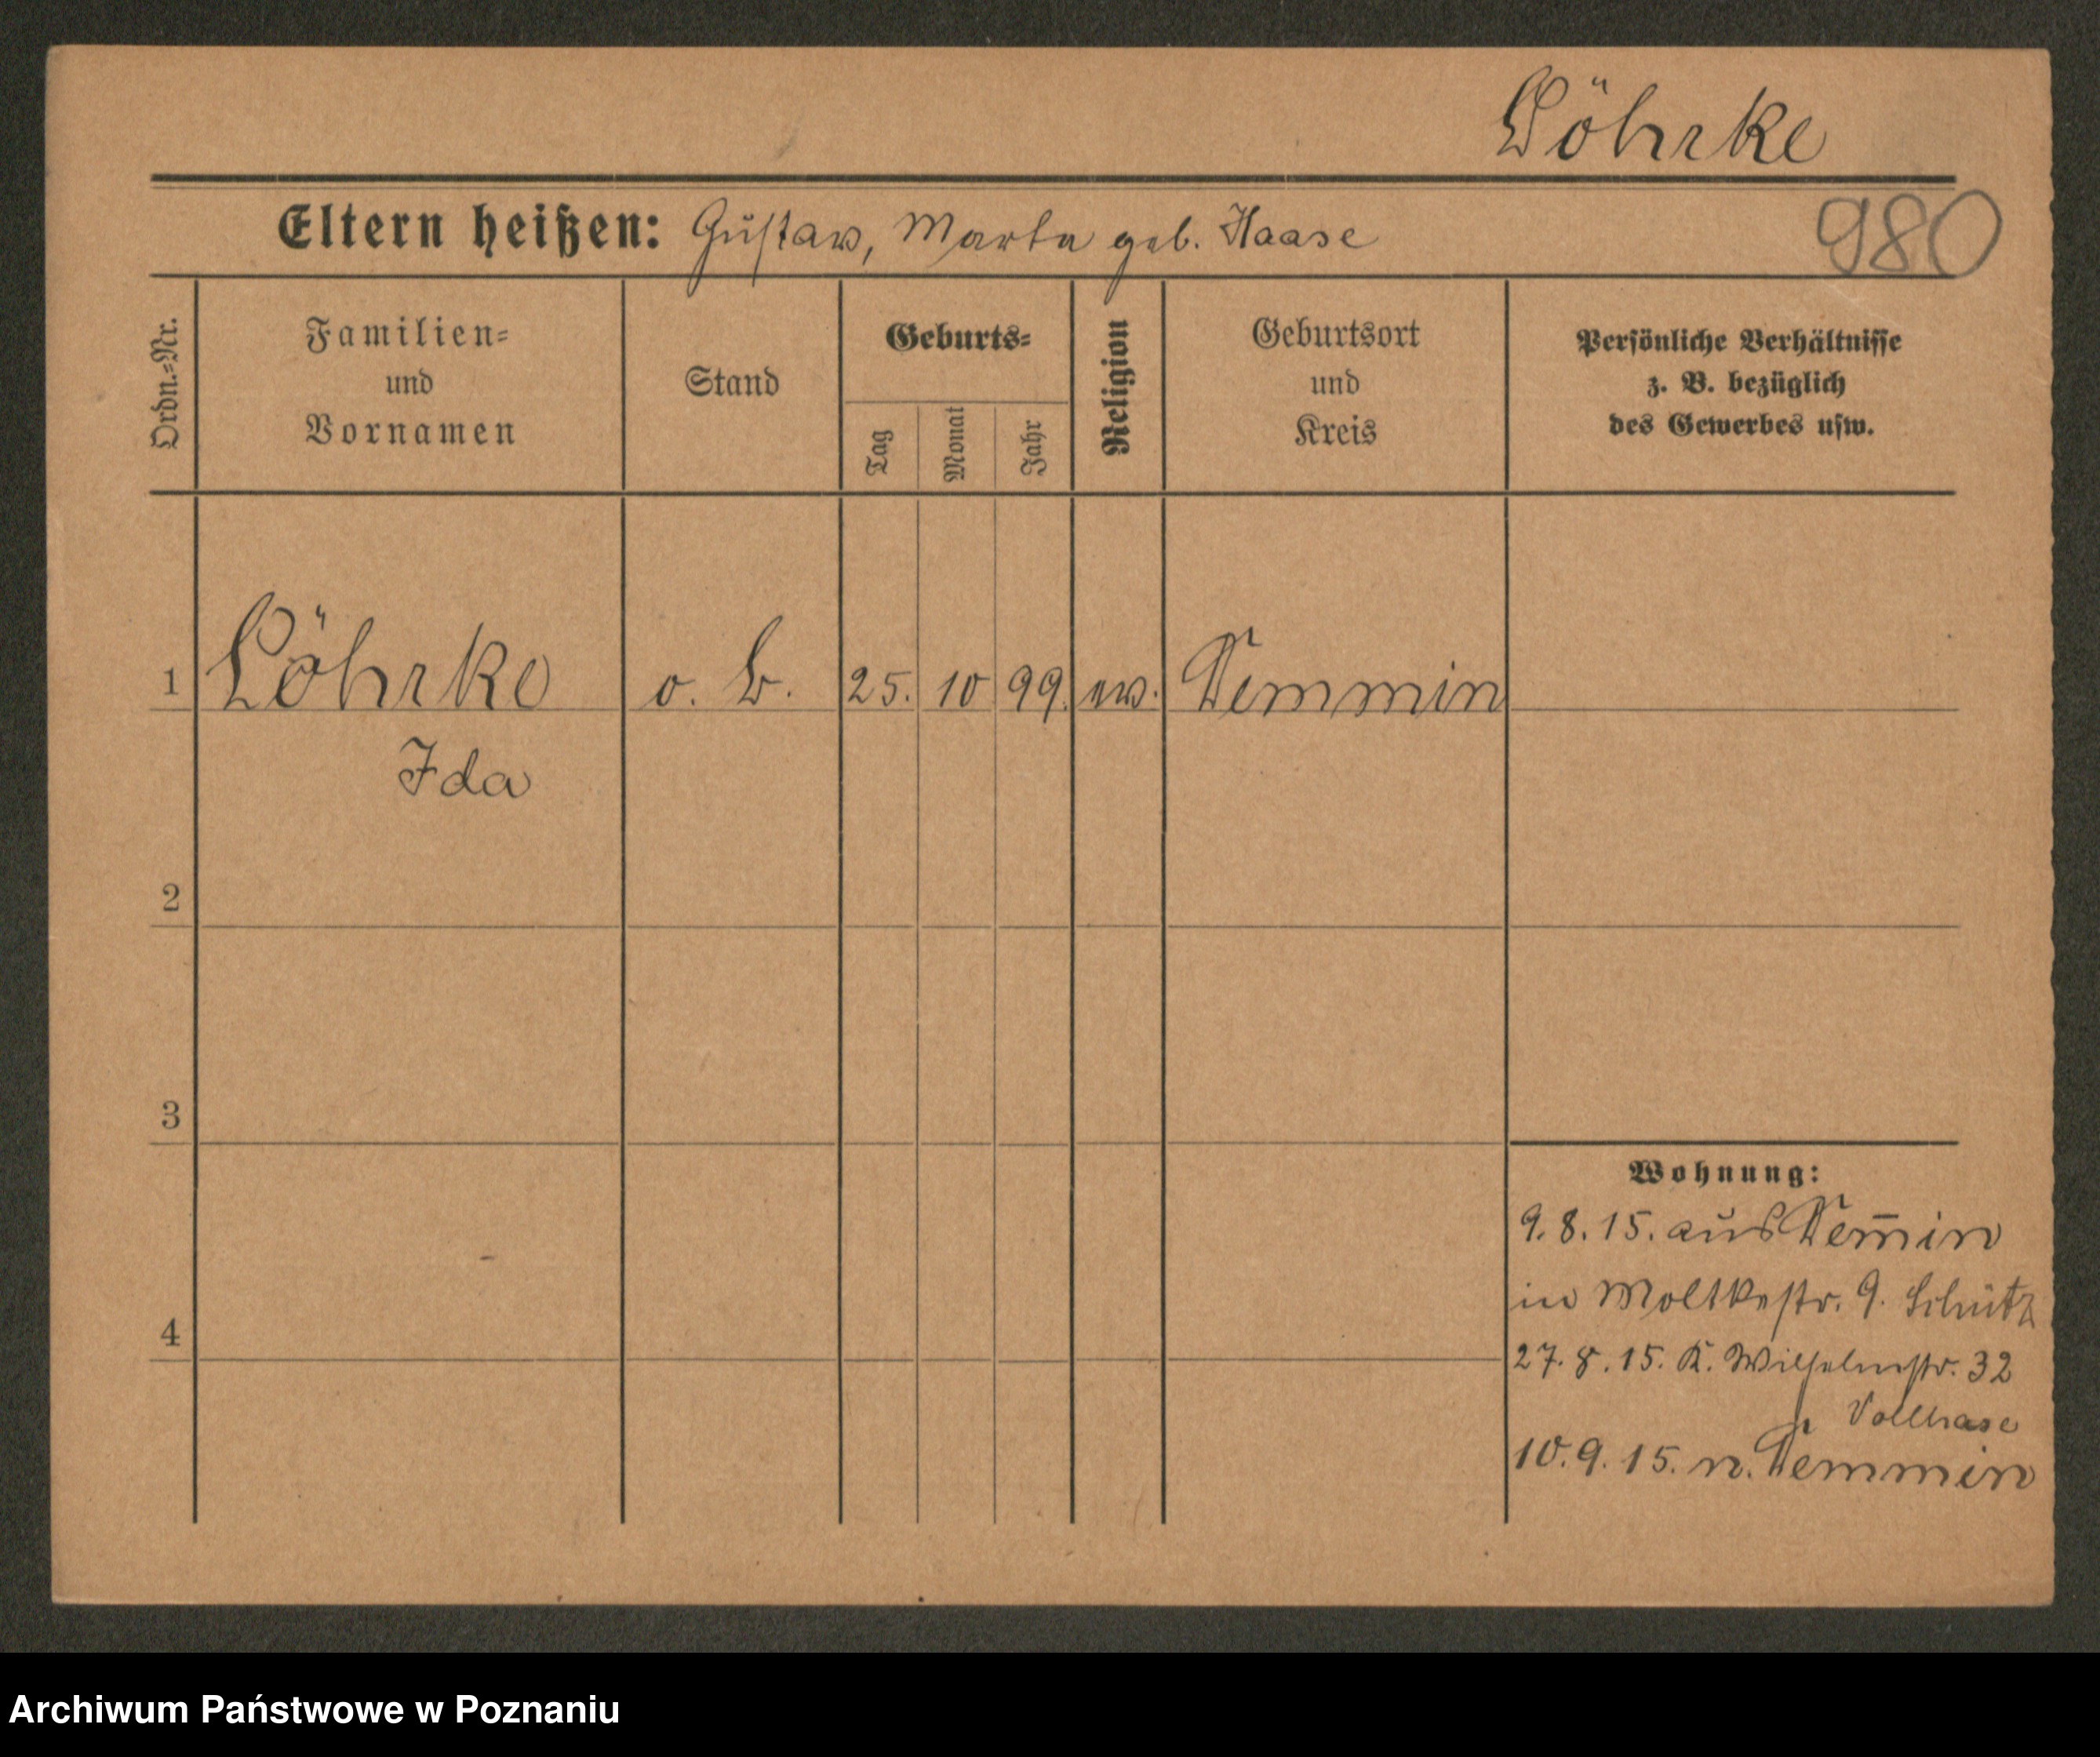 Löhrke
Eltern heißen: Gustav, Marta geb. Haase
980
Ordn.=Nr.
Familien=
und
Vornamen
Stand
Geburts=
Tag
Monat
Jahr
Religion
Geburtsort
und
Kreis
Persönliche Verhältnisse
z. B. bezüglich
des Gewerbes usw.
1 Löhrke o. B. 25. 10 99. ev. Temmin
Ida
2
3
4
Wohnung:
9. 8. 15. aus Tem̅in
in Moltkestr. 9. Schütz
27. 8. 15. K. Wilhelmstr. 32
Vollhase
10. 9. 15. n. Temmin
Archiwum Państwowe w Poznaniu